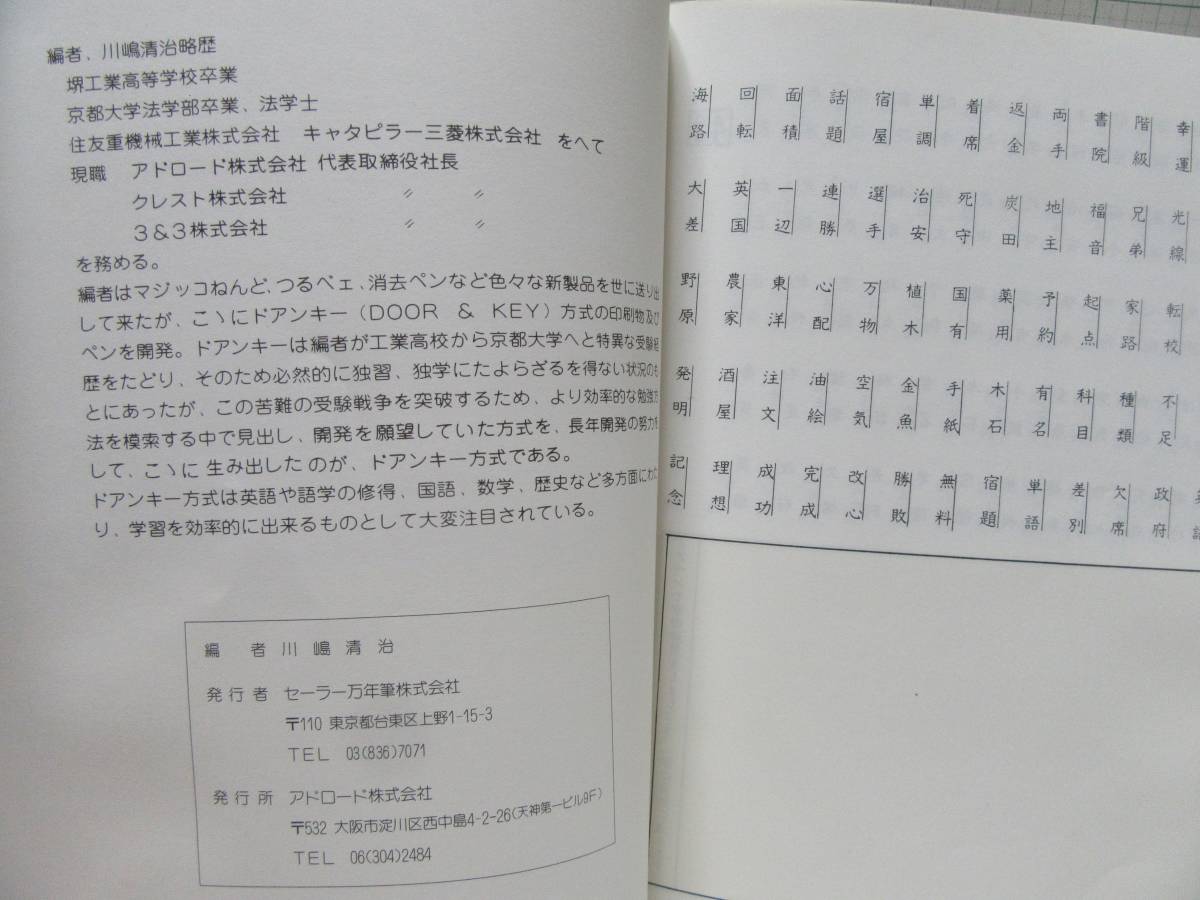 編者、川嶋清治略歴
堺工業高等学校卒業
京都大学法学部卒業、法学士
住友重機械工業株式会社 キャタピラー三菱株式会社 をへて
現職 アドロード株式会社 代表取締役社長
クレスト株式会社 〃 〃
3&3株式会社 〃 〃
を務める。
編者はマジッコねんど、つるペェ、消去ペンなど色々な新製品を世に送り出
して来たが、こゝにドアンキー(DOOR & KEY)方式の印刷物及び
ペンを開発。ドアンキーは編者が工業高校から京都大学へと特異な受験経
歴をたどり、そのため必然的に独習、独学にたよらざるを得ない状況のも
とにあったが、この苦難の受験戦争を突破するため、より効率的な勉強方
法を模索する中で見出し、開発を願望していた方式を、長年開発の努力を
して、こゝに生み出したのが、ドアンキー方式である。
ドアンキー方式は英語や語学の修得、国語、数学、歴史など多方面にわた
り、学習を効率的に出来るものとして大変注目されている。
編 者 川嶋清治
発行者 セーラー万年筆株式会社
〒110 東京都台東区上野1-15-3
TEL 03(836)7071
発行所 アドロード株式会社
〒532 大阪市淀川区西中島4-2-26(天神第一ビル9F)
TEL 06(304)2484
幸運 階級 書院 両手 返金 着席 単調 宿屋 話題 面積 回転 海路
光線 兄弟 福音 地主 炭田 死守 治安 選手 連勝 一辺 英国 大差
転校 家路 起点 予約 薬用 国有 植木 万物 心配 東洋 農家 野原
不足 種類 科目 有名 木石 手紙 金魚 空気 油絵 注文 酒屋 発明
政府 欠席 差別 単語 宿題 無料 勝敗 改心 完成 成功 理想 記念